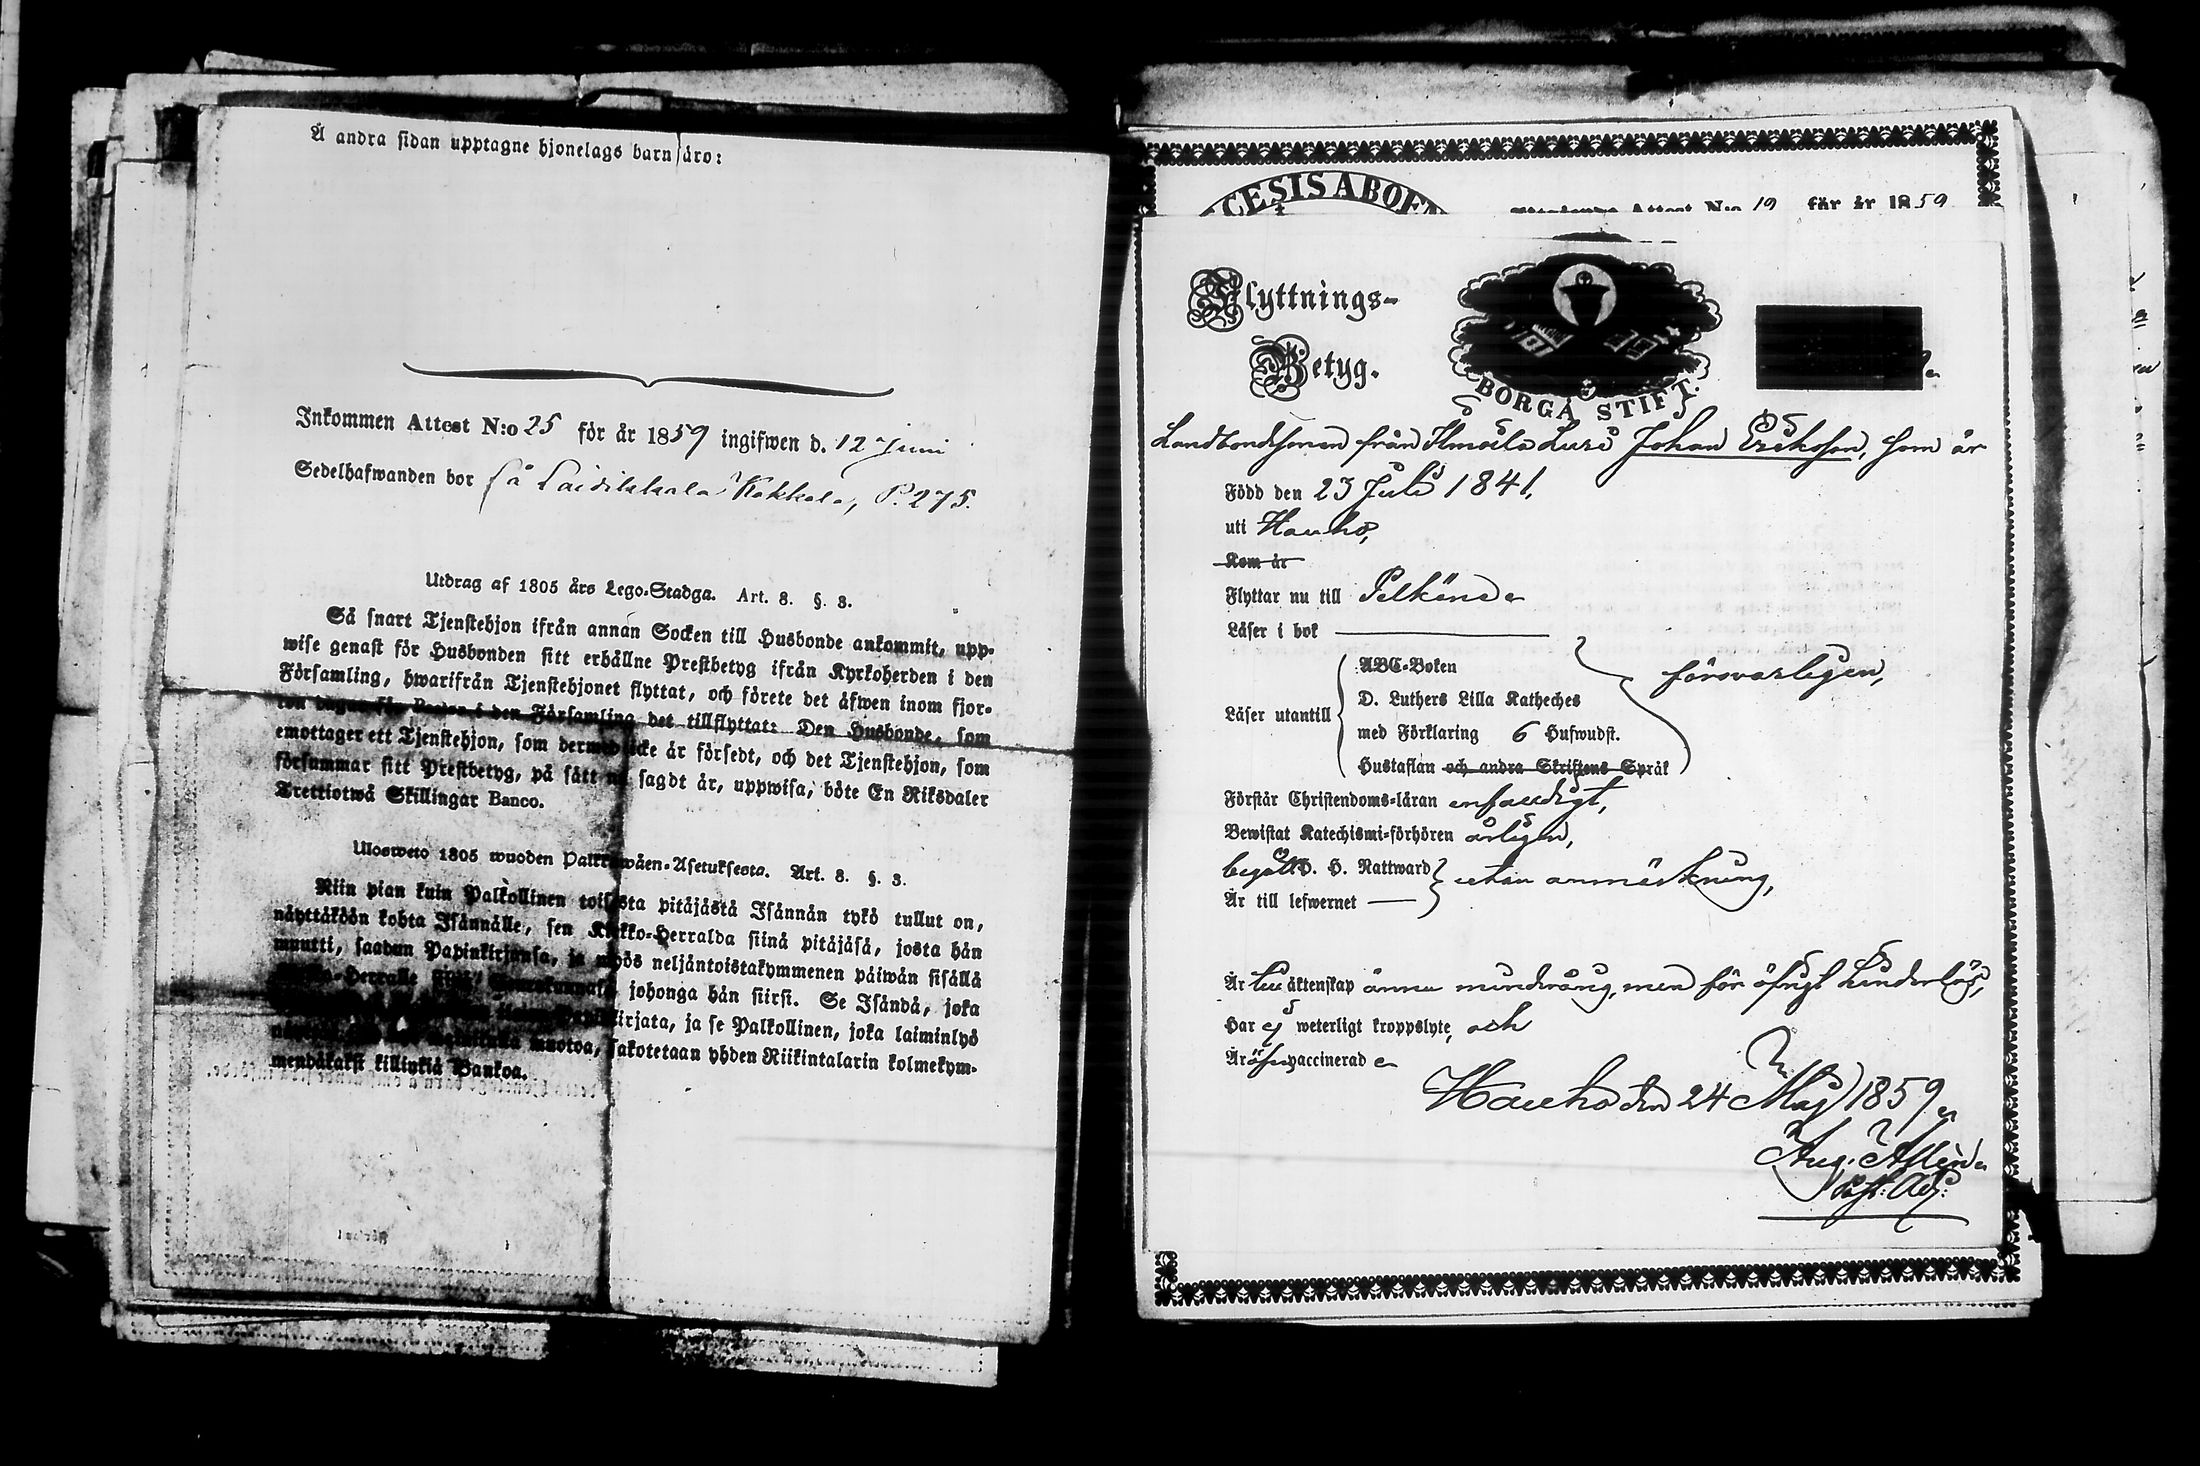 Å andra sidan upptagne hjonelags barn äro:
Inkommen Attest N:o 25 för år 1859 ingifwen d. 12 Juni
Sedelhafwanden bor på Laidikkala Kokkola, P. 275.
Utdrag af 1805 års Lego-Stadga. Art. 8. §. 3.
Så snart Tjenstehjon ifrån annan Socken till Husbonde ankommit, upp-
wise genast för Husbonden sitt erhållne Prestbetyg ifrån Kyrkoherden i den
Församling, hwarifrån Tjenstehjonet flyttat, och förete det äfwen inom fjor-
i den Församling det tillflyttat: Den Husbonde, som
emottager ett Tjenstehjon, som dermed icke är försedt, och det Tjenstehjon, som
försummar sitt Prestbetyg, på sätt nu sagdt är, uppwisa, böte En Riksdaler
Trettiotwå Skillingar Banco.
Ulosweto 1805 wuoden Palkkawäen-Asetuksesta. Art. 8. §. 3.
Niin pian kuin Palkollinen toisesta pitäjästä Isännän tykö tullut on,
näyttäköön kohta Isännälle, sen Kirkko-Herralda siinä pitäjäsä, josta hän
muutti, saadun Papinkirjansa, ja myös neljäntoistakymmenen päiwän sisällä
-Herralle johonga hän siirsi. Se Isändä, joka
kirjata, ja se Palkollinen, joka laiminlyö
muotoa, sakotetaan yhden Riikintalarin kolmekym-
mendäkaksi killinkiä Bankoa.
CESIS ABOE
Attest N:o 19 för år 1859
Flyttnings-
Betyg.
BORGÅ STIFT.
Landbondesonen från Ilmoila Johan Eriksson, som är
Född den 23 Juli 1841,
uti Hauho,
Kom år
Flyttar nu till Pelkäne
Läser i bok
ABC-Boken
D. Luthers Lilla Katheches
Läser utantill
försvarligen,
med Förklaring 6 Hufwudst.
Hustaflan och andra Skriftens Språk
Förstår Christendoms-läran enfaldigt,
Bewistat Katechismi-förhören årligen,
begått H. H. Nattward
utan anmärkning,
Är till lefwernet
Är till äktenskap ännu minderårig, men för öfrigt hinderlös,
Har ej weterligt kroppslyte, och
Är vaccinerad
Hauho den 24 Maj 1859
Aug.
Past. Adj.